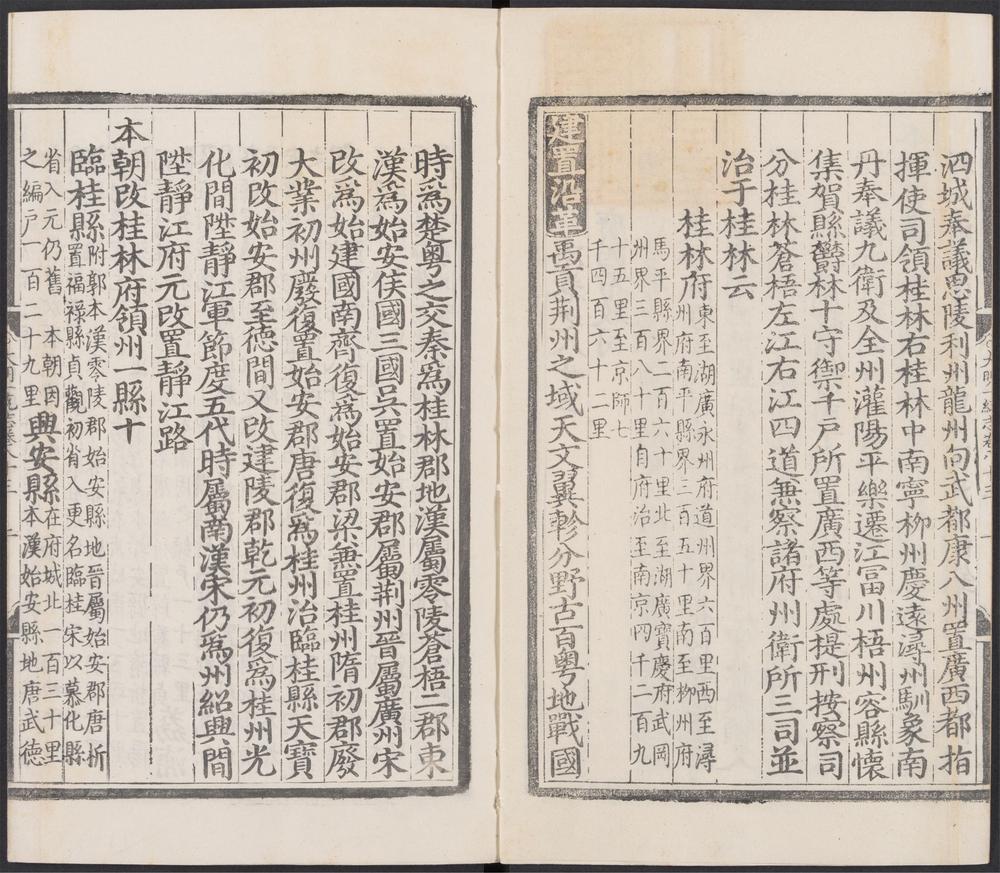 泗城奉議思陵利州龍州向武都康八州置廣西都指
揮使司領桂林右桂林中南寧柳州慶遠潯州馴象南
丹奉議九衛及全州灌陽平樂遷江冨川梧州容縣懷
集賀縣欝林十守禦千戸所置廣西等處提刑按察司
分桂林蒼梧左江右江四道兼察諸府州衛所三司並
治于桂林云
桂林府
東至湖廣永州府道州界六百里西至潯
州府南平縣界三百五十里南至柳州府
馬平縣界二百六十里北至湖廣寶慶府武岡
州界三百八十里自府治至南京四千二百九
十五里至京師七
千四百六十二里
建置沿革
禹貢荆州之域天文翼軫分野古百粤地戰國
時爲楚粤之交秦爲桂林郡地漢屬零陵蒼梧二郡東
漢爲始安侯國三國呉置始安郡屬荆州晉屬廣州宋
改爲始建國南齊復爲始安郡梁兼置桂州隋初郡廢
大業初州廢復置始安郡唐復爲桂州治臨桂縣天寶
初改始安郡至德間又改建陵郡乾元初復爲桂州光
化間陞靜江軍節度五代時屬南漢宋仍爲州紹興間
陞靜江府元改置靜江路
本朝改桂林府領州一縣十
臨桂縣
附郭本漢零陵郡始安縣地晉屬始安郡唐析
置福禄縣貞觀初省入更名臨桂宋以慕化縣
省入元仍舊 本朝因
之編戸一百二十九里
興安縣
在府城北一百三十里
本漢始安縣地唐武德